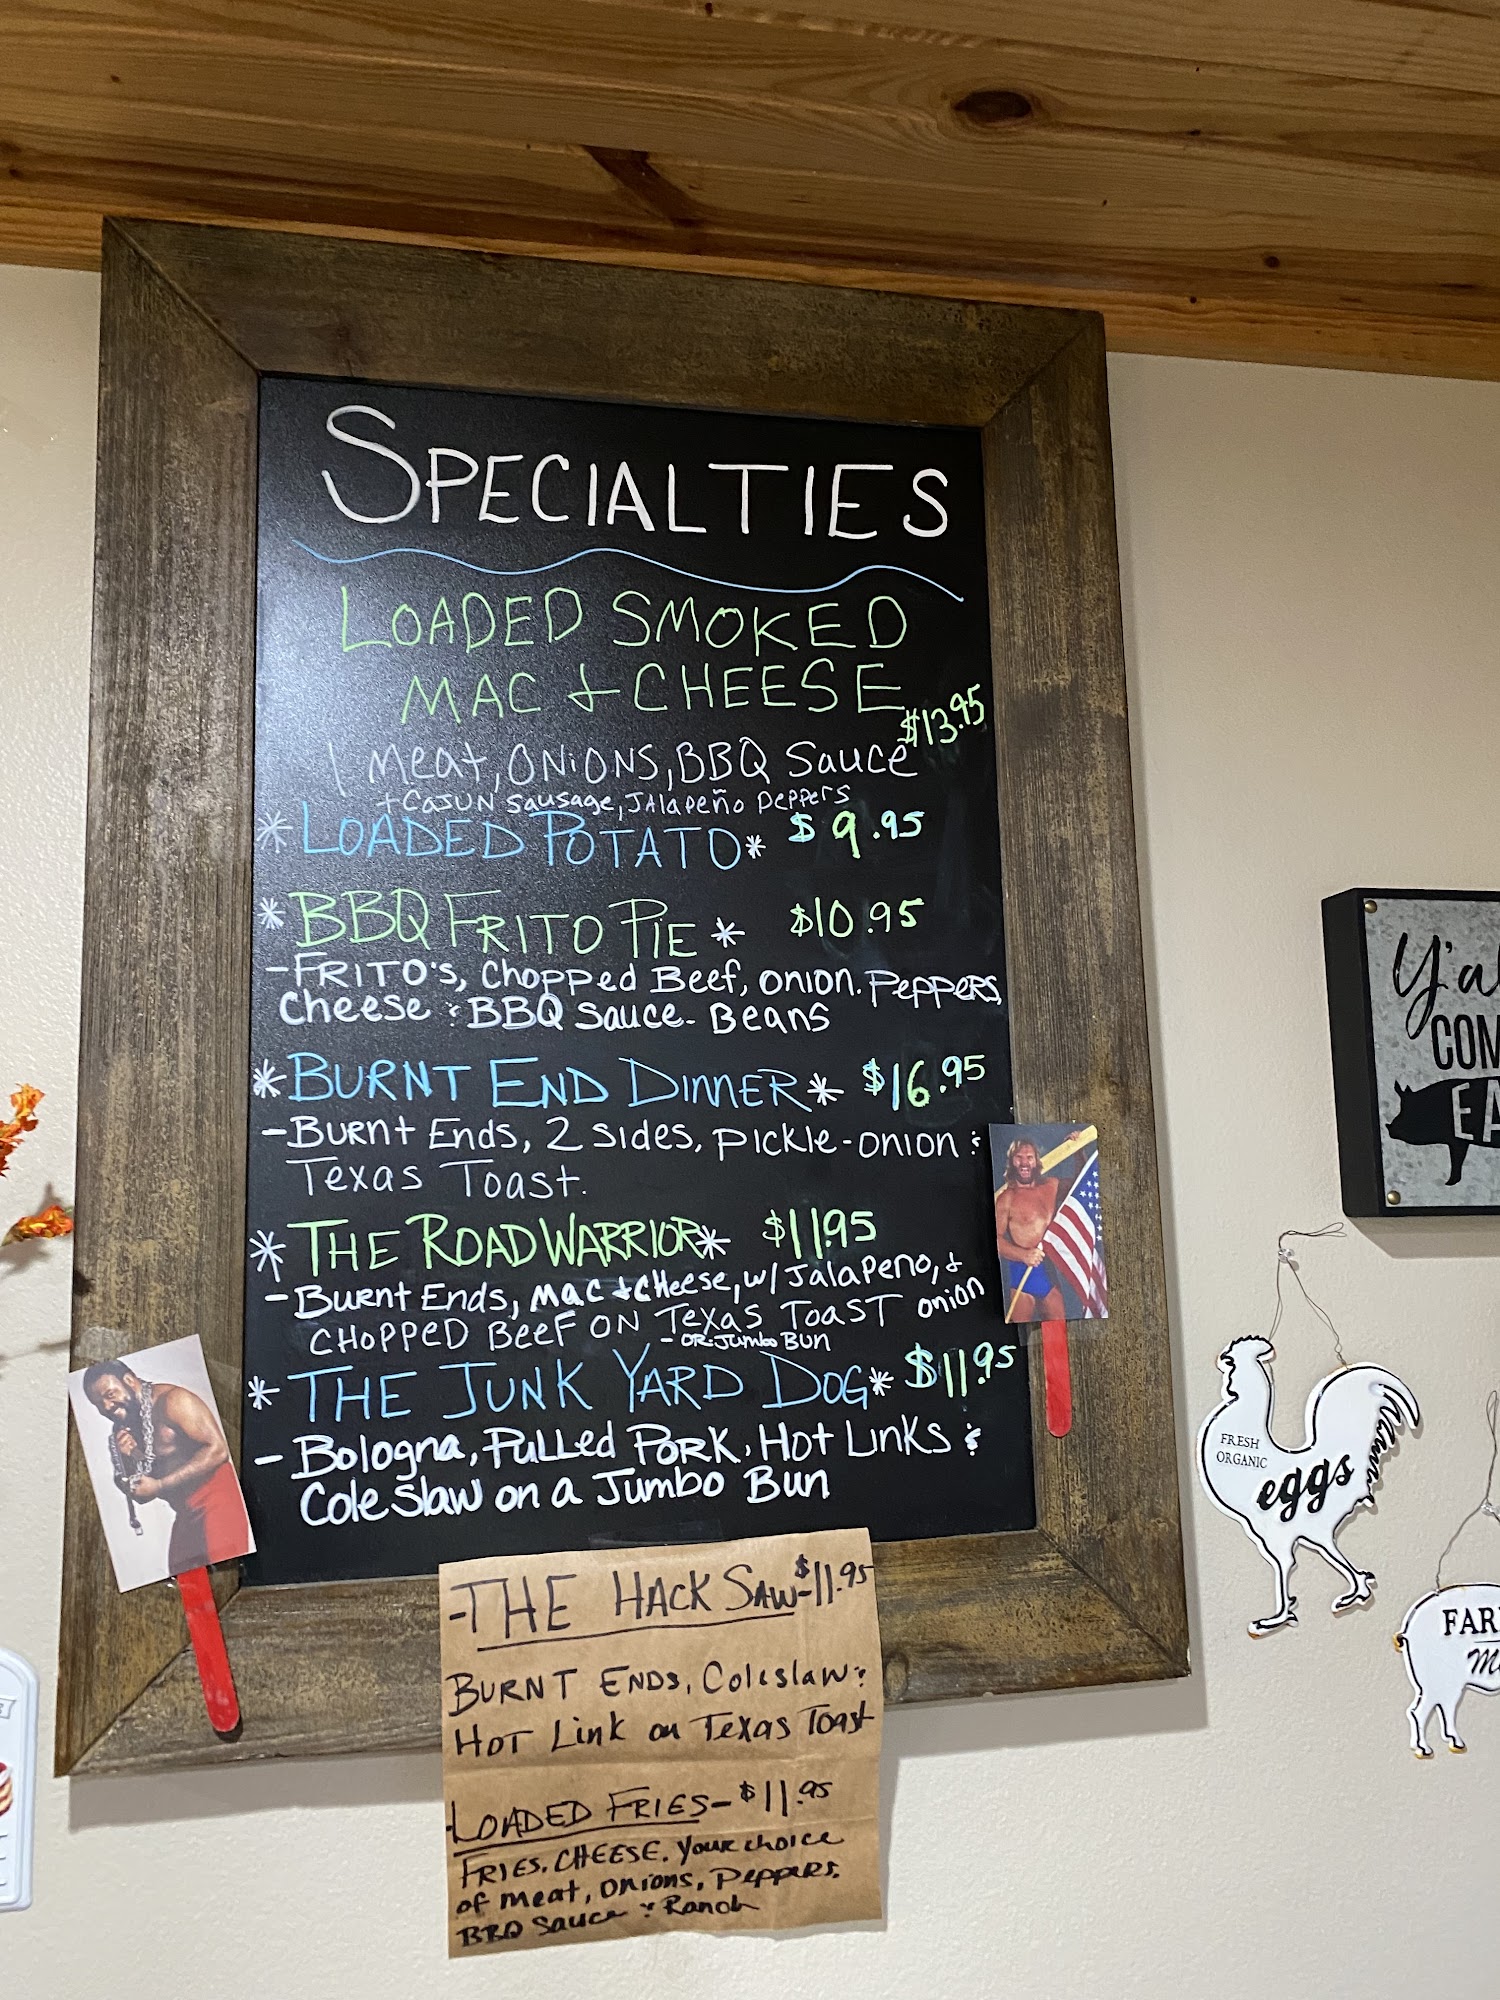 SPECIALTIES
LOADED SMOKED
MAC & CHEESE
$13.95
1 Meat, ONiONS, BBQ Sauce
+ CAJUN Sausage, JAlapeño Peppers
* LOADED POTATO * $9.95
* BBQ FRITO PIE * $10.95
- FRITO's, Chopped Beef, onion. Peppers,
Cheese & BBQ Sauce - Beans
* BURNT END DINNER * $16.95
- Burnt Ends, 2 sides, pickle-onion &
Texas Toast.
* THE ROAD WARRIOR * $11.95
- Burnt Ends, Mac & Cheese, w/ Jalapeno, &
CHOPPED BEEF ON Texas TOAST onion
- OR: Jumbo BUN
* THE JUNK YARD DOG * $11.95
- Bologna, Pulled Pork, Hot Links &
Coleslaw on a Jumbo Bun
- THE HACK SAW - $11.95
BURNT ENDS, Coleslaw &
HOT Link on Texas Toast
- LOADED FRIES - $11.95
FRIES. CHEESE. Your choice
of meat, onions, Peppers,
BBQ Sauce & Ranch
Y'al
COM
EA
FRESH
ORGANIC
eggs
FAR